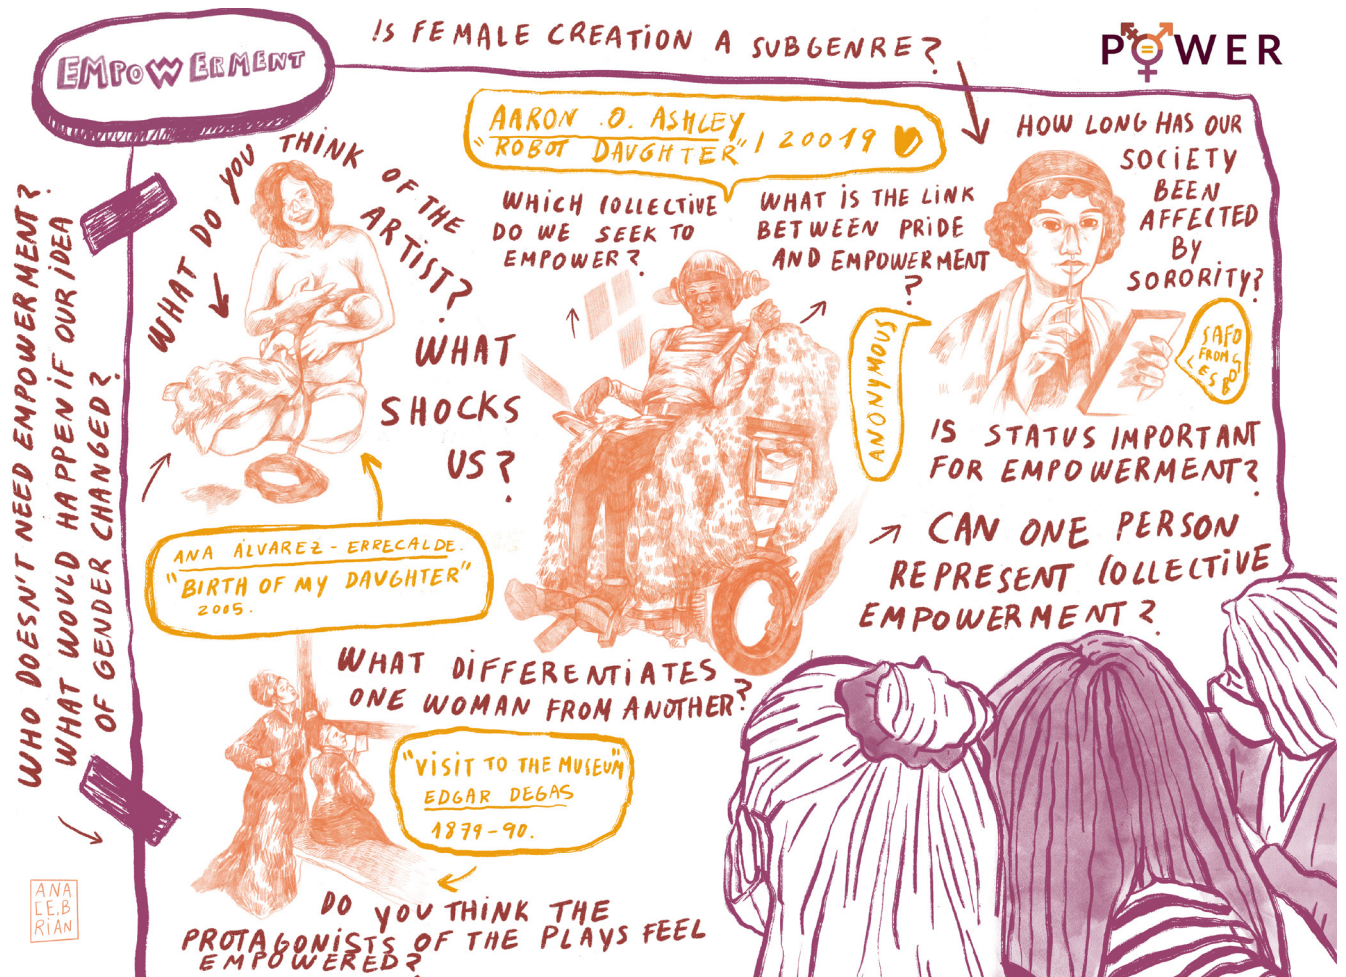 EMPOWERMENT
IS FEMALE CREATION A SUBGENRE?
POWER
WHO DOESN'T NEED EMPOWERMENT?
WHAT WOULD HAPPEN IF OUR IDEA
OF GENDER CHANGED?
WHAT DO YOU THINK OF THE
ARTIST?
WHAT
SHOCKS
US?
ANA ÁLVAREZ-ERRECALDE.
"BIRTH OF MY DAUGHTER"
2005.
AARON .O. ASHLEY
"ROBOT DAUGHTER" / 20019
WHICH COLLECTIVE
DO WE SEEK TO
EMPOWER?
WHAT IS THE LINK
BETWEEN PRIDE
AND EMPOWERMENT
?
HOW LONG HAS OUR
SOCIETY
BEEN
AFFECTED
BY
SORORITY?
ANONYMOUS
SAFO
FROM
LESBOS
IS STATUS IMPORTANT
FOR EMPOWERMENT?
CAN ONE PERSON
REPRESENT COLLECTIVE
EMPOWERMENT?
WHAT DIFFERENTIATES
ONE WOMAN FROM ANOTHER?
"VISIT TO THE MUSEUM"
EDGAR DEGAS
1879-90.
DO YOU THINK THE
PROTAGONISTS OF THE PLAYS FEEL
EMPOWERED?
ANA
LE.B
RIAN